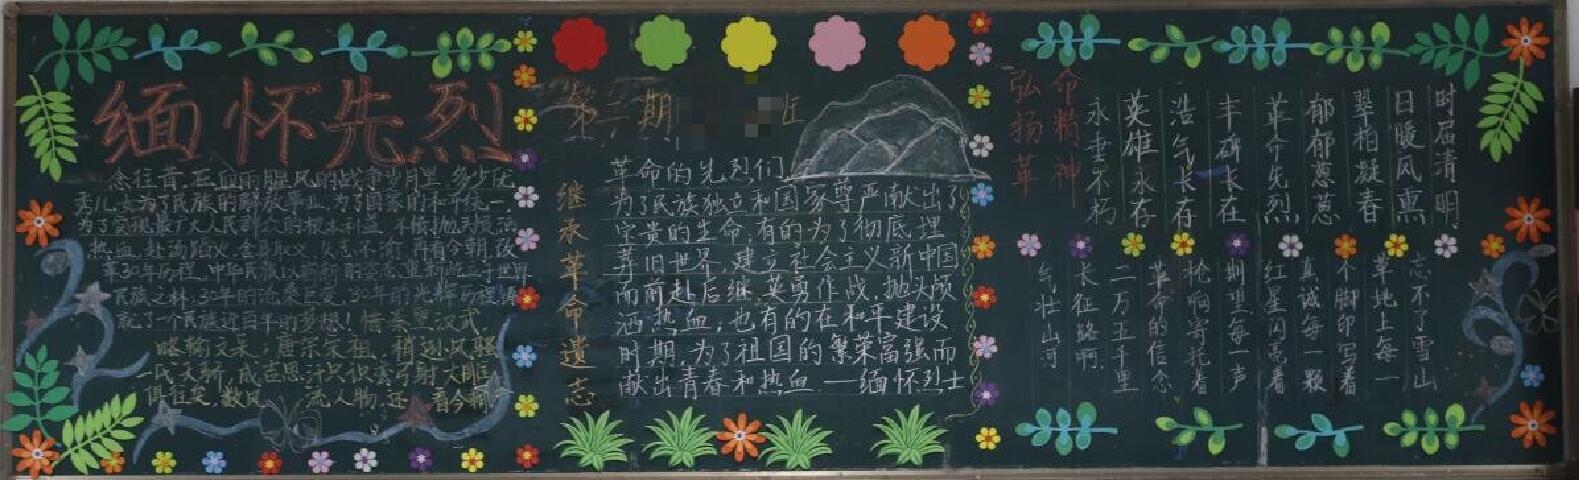 缅怀先烈
念往昔,在血雨腥风的战争岁月里,多少优
秀儿女为了民族的解放事业,为了国家的和平统一,
为了实现最广大人民群众的根本利益,不惜抛头颅洒
热血,赴汤蹈火,舍身取义,矢志不渝,再看今朝,改
革30年历程,中华民族以崭新的姿态,重新屹立于世界
民族之林,30年的沧桑巨变,30年的光辉历程,铸
就了一个民族近百年的梦想!惜秦皇汉武,
略输文采;唐宗宋祖,稍逊风骚
一代天骄,成吉思汗只识弯弓射大雕
俱往矣,数风流人物,还看今朝
第二期
班
继承革命遗志
革命的先烈们
为了民族独立和国家尊严献出了
宝贵的生命,有的为了彻底埋
葬旧世界,建立社会主义新中国
而前赴后继,英勇作战,抛头颅
洒热血,也有的在和平建设
时期,为了祖国的繁荣富强而
献出青春和热血——缅怀烈士
弘扬革
命精神
时届清明
日暖风熏
翠柏凝春
郁郁葱葱
革命先烈
丰碑长在
浩气长存
英雄永存
永垂不朽
忘不了雪山
草地上每一
个脚印写着
真诚每一颗
红星闪亮着
期望每一声
枪响寄托着
革命的信念
二万五千里
长征路啊,
气壮山河